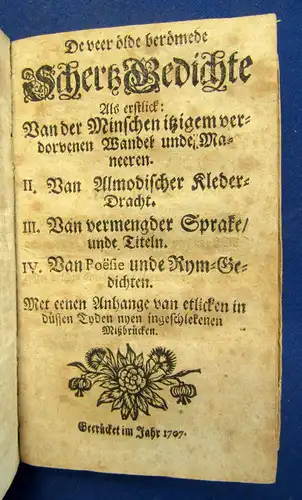 De veer ölde berömede
Schertz Gedichte
Als erstlick:
Van der Minschen itzigem ver-
dorvenen Wandel unde Ma-
neeren.
II. Van Almodischer Kleder-
Dracht.
III. Van vermengder Sprake/
unde Titeln.
IV. Van Poësie unde Rym-Ge-
dichten.
Met eenen Anhange van etlicken in
düssen Tyden nyen ingeschlekenen
Mißbrücken.
Gedrücket im Jahr 1707.